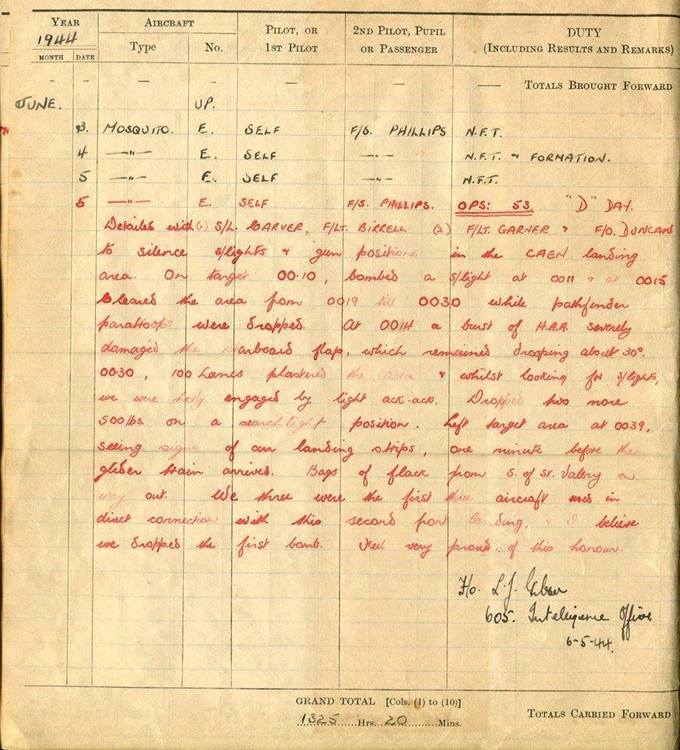 YEAR AIRCRAFT PILOT, OR 2ND PILOT, PUPIL DUTY
1944 Type No. 1ST PILOT OR PASSENGER (INCLUDING RESULTS AND REMARKS)
MONTH DATE
— — — — — — TOTALS BROUGHT FORWARD
JUNE. UP.
3. MOSQUITO. E. SELF F/S. PHILLIPS N.F.T.
4 —"— E. SELF —"— N.F.T. & FORMATION.
5 —"— E. SELF —"— N.F.T.
5 —"— E. SELF F/S. PHILLIPS. OPS: 53 "D" DAY.
Detailed with (1) S/L. CARVER, F/LT. BIRRELL (2) F/LT. GARNER & F/O. DUNCAN
to silence s/lights & gun positions in the CAEN landing
area. On target 00.10, bombed a s/light at 0011 & at 0015
Cleared the area from 0019 till 0030 while pathfinder
paratroops were dropped. At 0014 a burst of H.A.A. severely
damaged the starboard flap, which remained drooping about 30°.
00.30, 100 Lancs plastered the area & whilst looking for s/lights,
we were hotly engaged by light ack-ack. Dropped two more
500lbs. on a searchlight position. Left target area at 0039,
seeing signs of our landing strips, one minute before the
glider train arrives. Bags of flack from S. of St. Valery on
way out. We three were the first three aircraft used in
direct connection with this second front landing, & I believe
we dropped the first bomb. Feel very proud of this honour.
F/o. L. J.
605. Intelligence Officer
6-5-44.
GRAND TOTAL [Cols. (1) to (10)]
1325 Hrs. 20 Mins. TOTALS CARRIED FORWARD